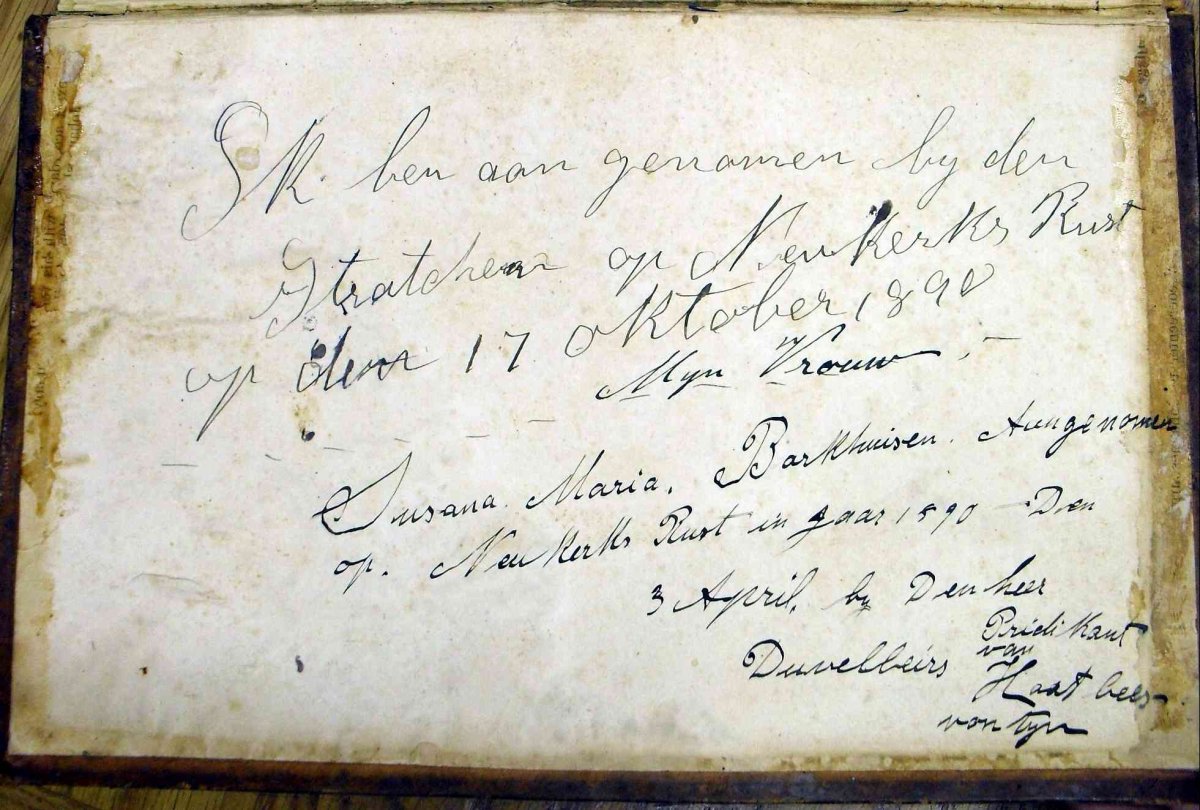 Ik ben aan genomen by den
Stratchen op Neukerks Rust
op den 17 oktober 1890
Myn Vrouw
Susana Maria, Barkhuisen. Aungenomen
op. Neukerks Rust in Jaar 1890 Den
3 April, by Den heer
Duvelbeirs Pridikant
van
Haat bees
von tyn